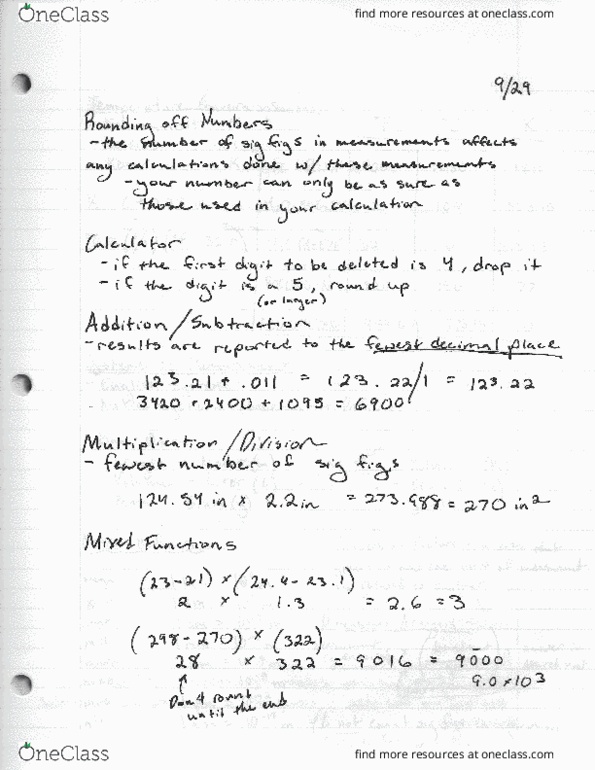 OneClass
find more resources at oneclass.com
9/29
Rounding off Numbers
- the number of sig figs in measurements affects
any calculations done w/ these measurements
- your number can only be as sure as
those used in your calculation
Calculator
- if the first digit to be deleted is 4, drop it
- if the digit is a 5, round up
(or larger)
Addition/Subtraction
- results are reported to the fewest decimal place
123.21 + .011 = 123.22/1 = 123.22
3420 + 2400 + 1095 = 6900
Multiplication/Division
- fewest number of sig figs
124.54 in x 2.2 in = 273.988 = 270 in²
Mixed Functions
(23-21) x (24.4-23.1)
2 x 1.3 = 2.6 = 3
(298-270) x (322)
28 x 322 = 9016 = 9000
9.0 x 10³
↑
Don't round
until the end
OneClass
find more resources at oneclass.com